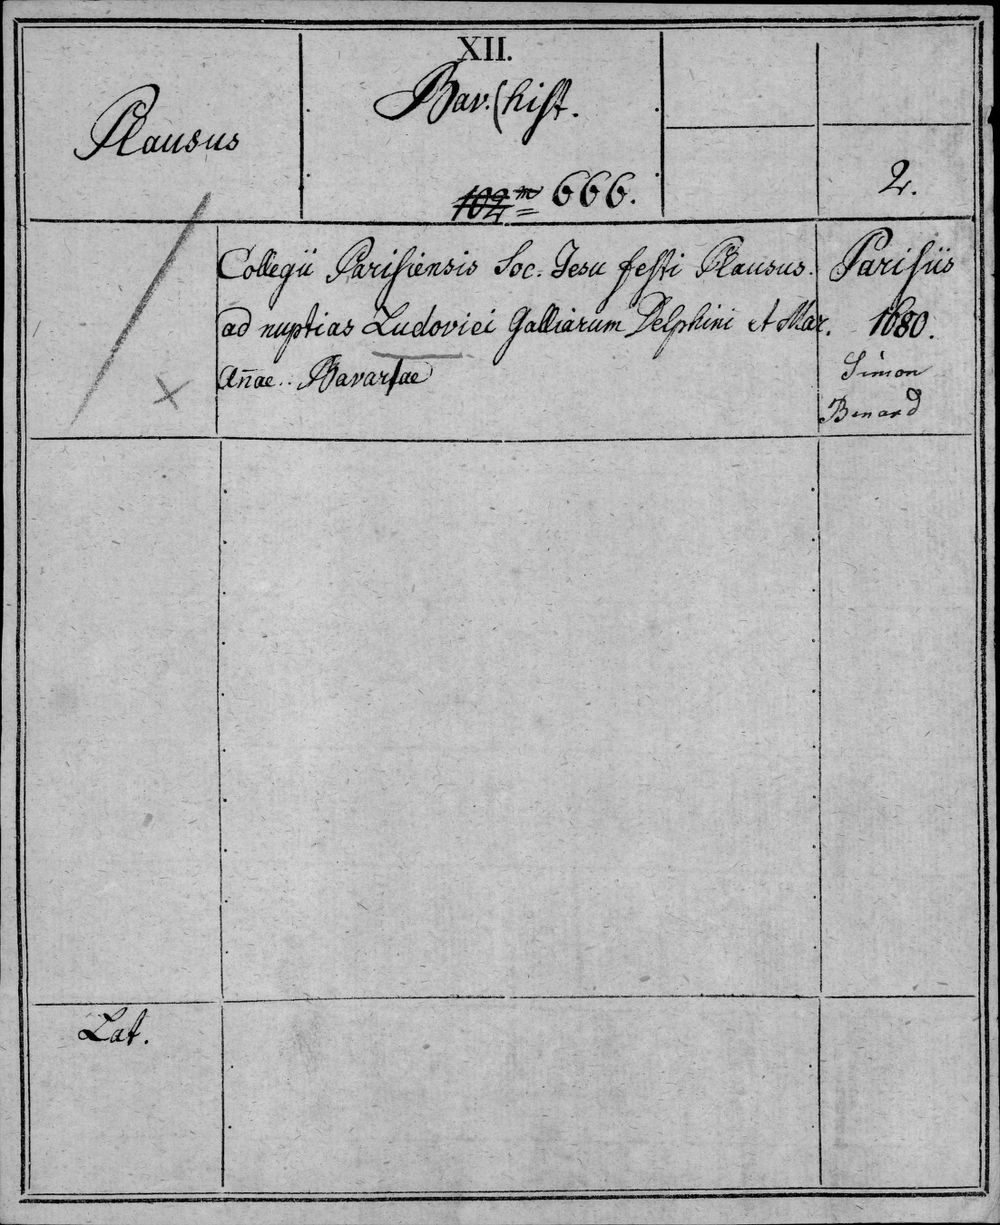 XII.
Plausus
Bav. (hist.
102 m 666.
2.
Collegii Parisiensis Soc. Jesu festi Plausus.
ad nuptias Ludovici Galliarum Delphini et Mar.
Añae.. Bavariae
Parisiis
1680.
Simon
Benard
Lat.